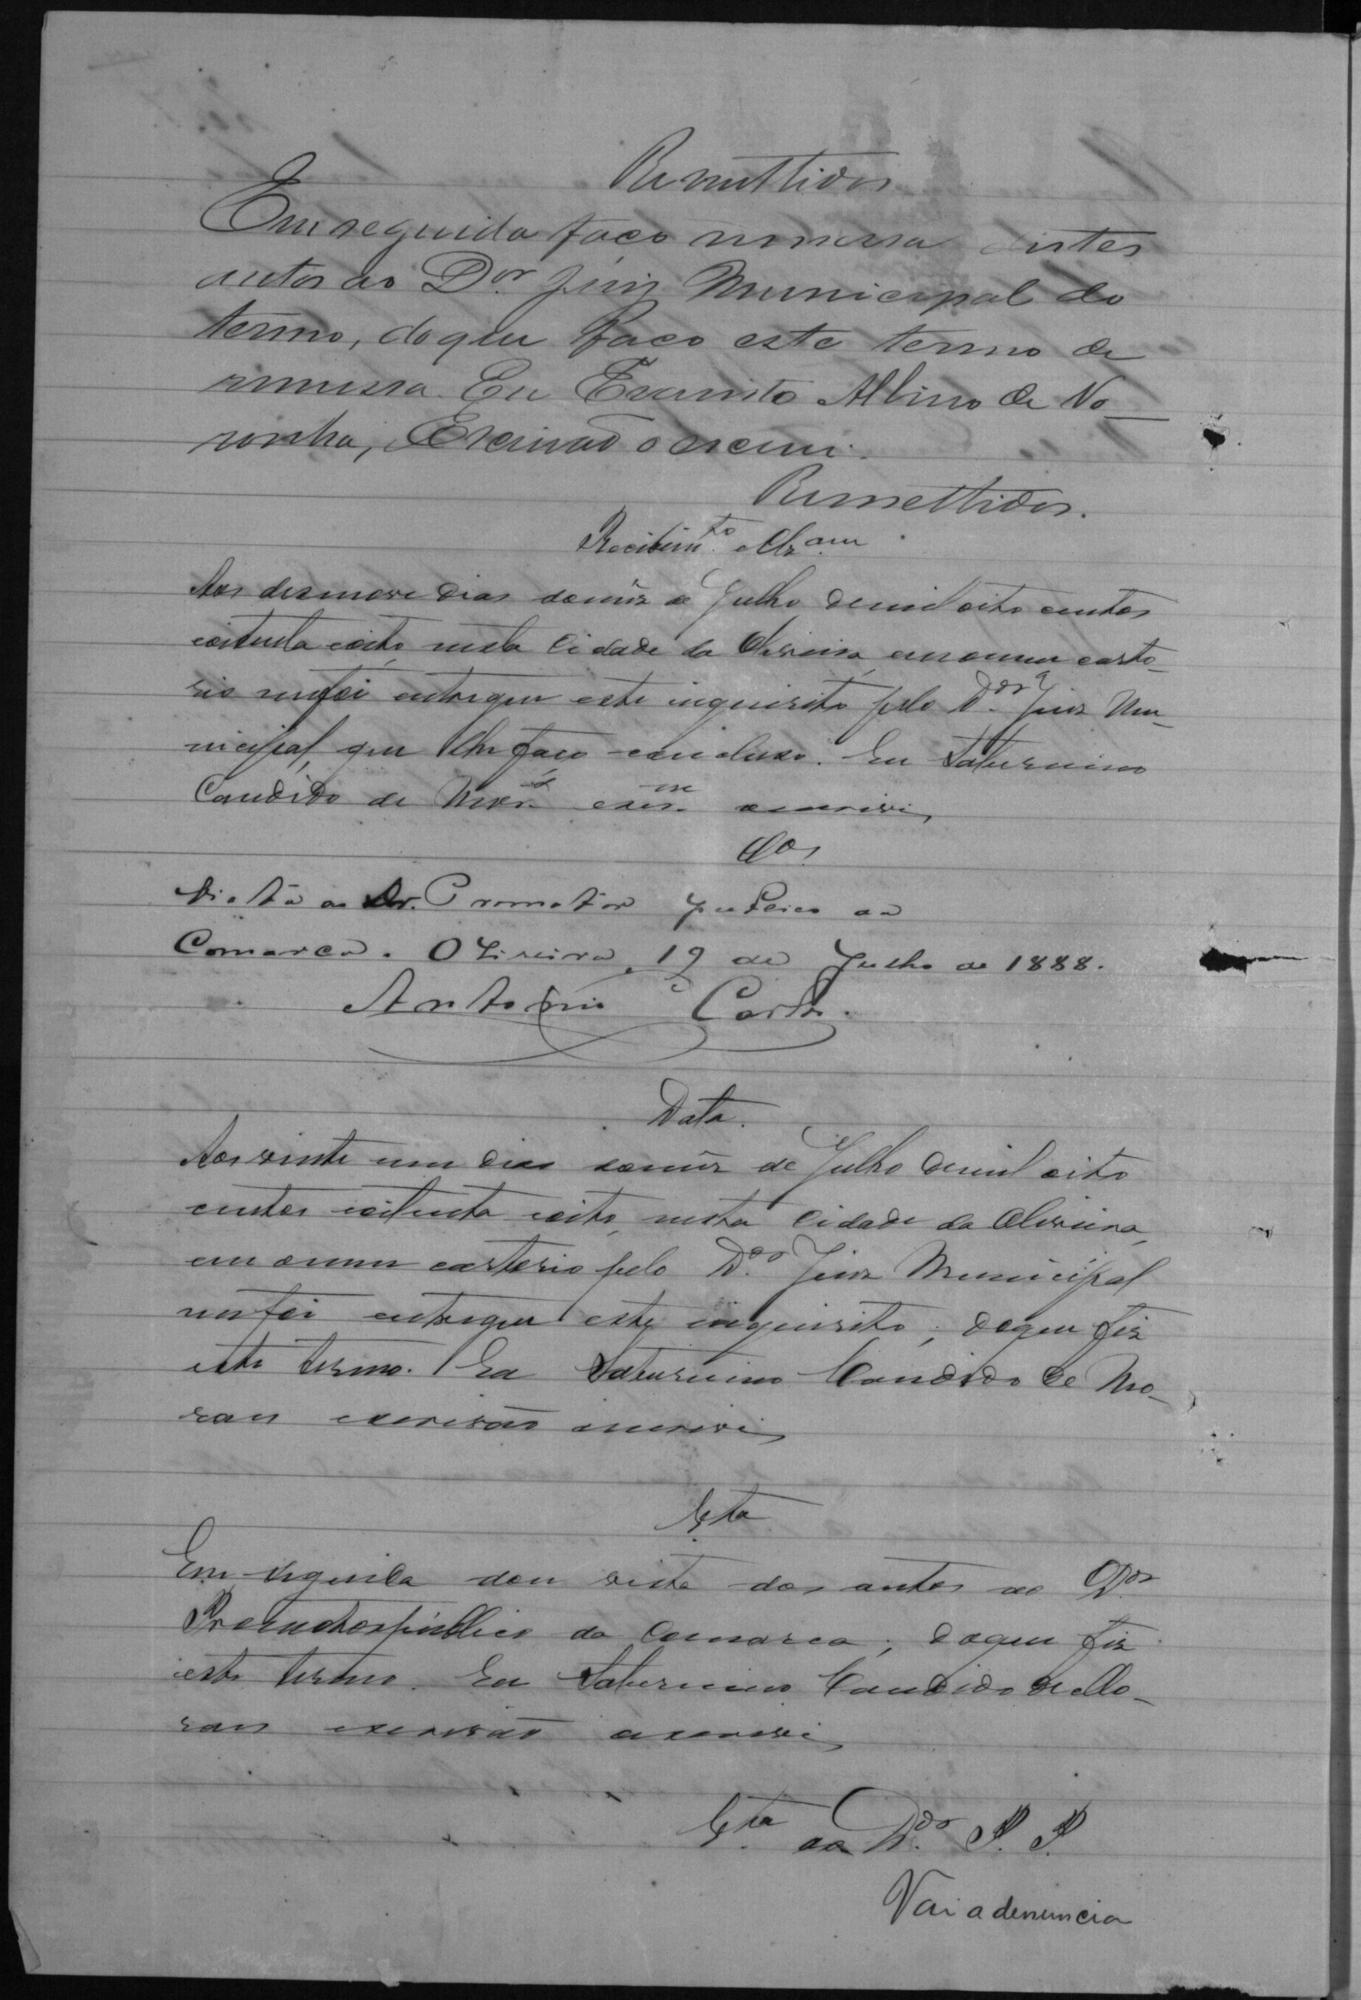 Remettidos
Em seguida faço remessa destes
autos ao Dor. Juiz Municipal do
termo, do que faço este termo de
remessa. Eu Evaristo Albino de No
ronha, Escrivão o escrevi.
Remettidos.
Recebimto. e Clzam
Aos desenove dias do mez de Julho de mil oito centos
oitenta e oito, nesta Cidade da Oliveira, em o meu carto-
rio me foi entregue este inquerito pelo Dor. Juiz Mu-
nicipal, que lhe faço concluso. Eu Saturnino
Candido de escrevi
Clos
Vista ao Dr. Promotor publico da
Comarca. Oliveira, 19 de Julho de 1888.
Antonio
Data.
Aos vinte um dias do mez de Julho de mil oito
centos oitenta e oito, nesta Cidade da Oliveira,
em o meu cartorio pelo Dor. Juiz Municipal
me foi entregue este inquerito; do que fiz
este termo. Eu Saturnino Candido de Mo-
raes escrivão escrevi
Vta
Em seguida dou vista dos autos ao Dor.
Promotor publico da Comarca; do que fiz
este termo. Eu Saturnino Candido de Mo-
raes escrivão o escrevi
Vta. ao Dor. P. P.
Vai a denuncia